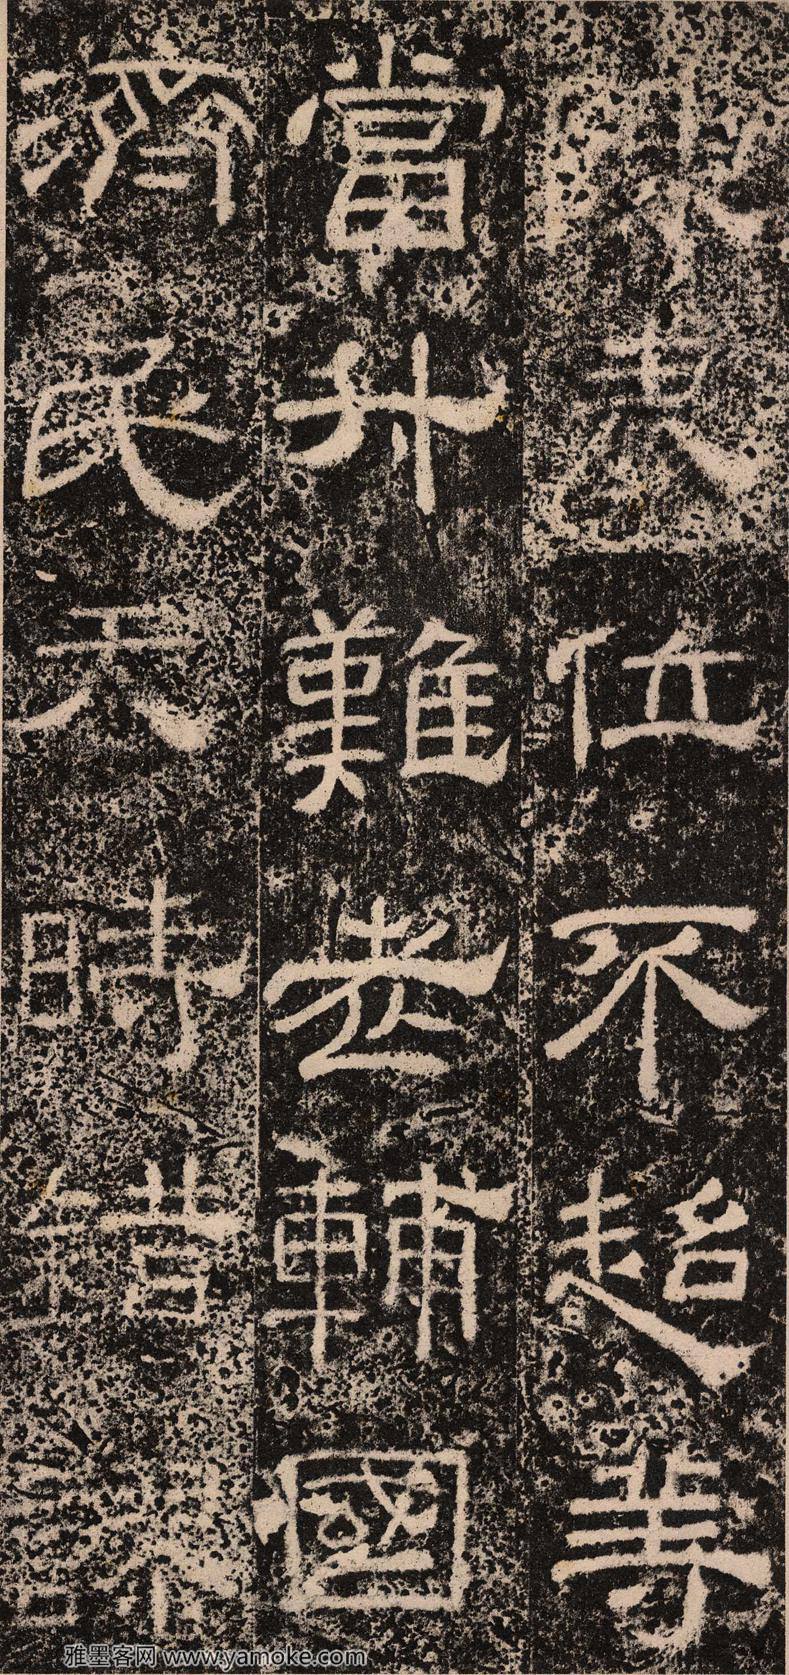 位不超等
當升難老輔國
濟民天時
雅墨客网 www.yamoke.com